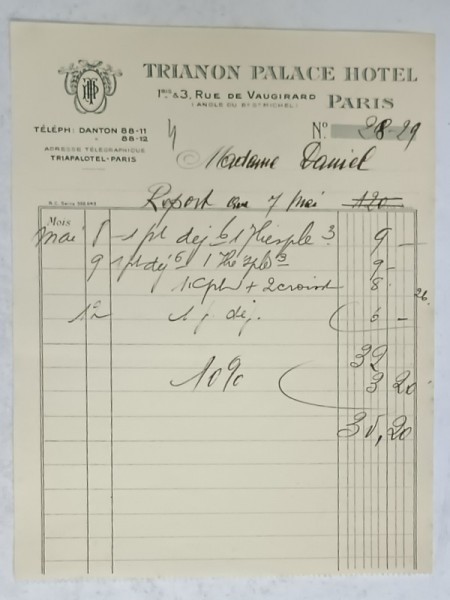 TRIANON PALACE HOTEL
1 BIS & 3, RUE DE VAUGIRARD
(ANGLE DU Bd St MICHEL)
PARIS
TÉLÉPH: DANTON 88-11
88-12
ADRESSE TÉLÉGRAPHIQUE
TRIAPALOTEL-PARIS
No 28-29
Madame Daniel
Report au 7 mai 120
Mois
mai 8 1 pt dej 6 1 Thé 3 9 -
9 1 pt dej 6 1 Thé 3 9 -
1 Cplt + 2 croiss 8
26.
12 1 dej. 6 -
32
10% 3 20
35,20